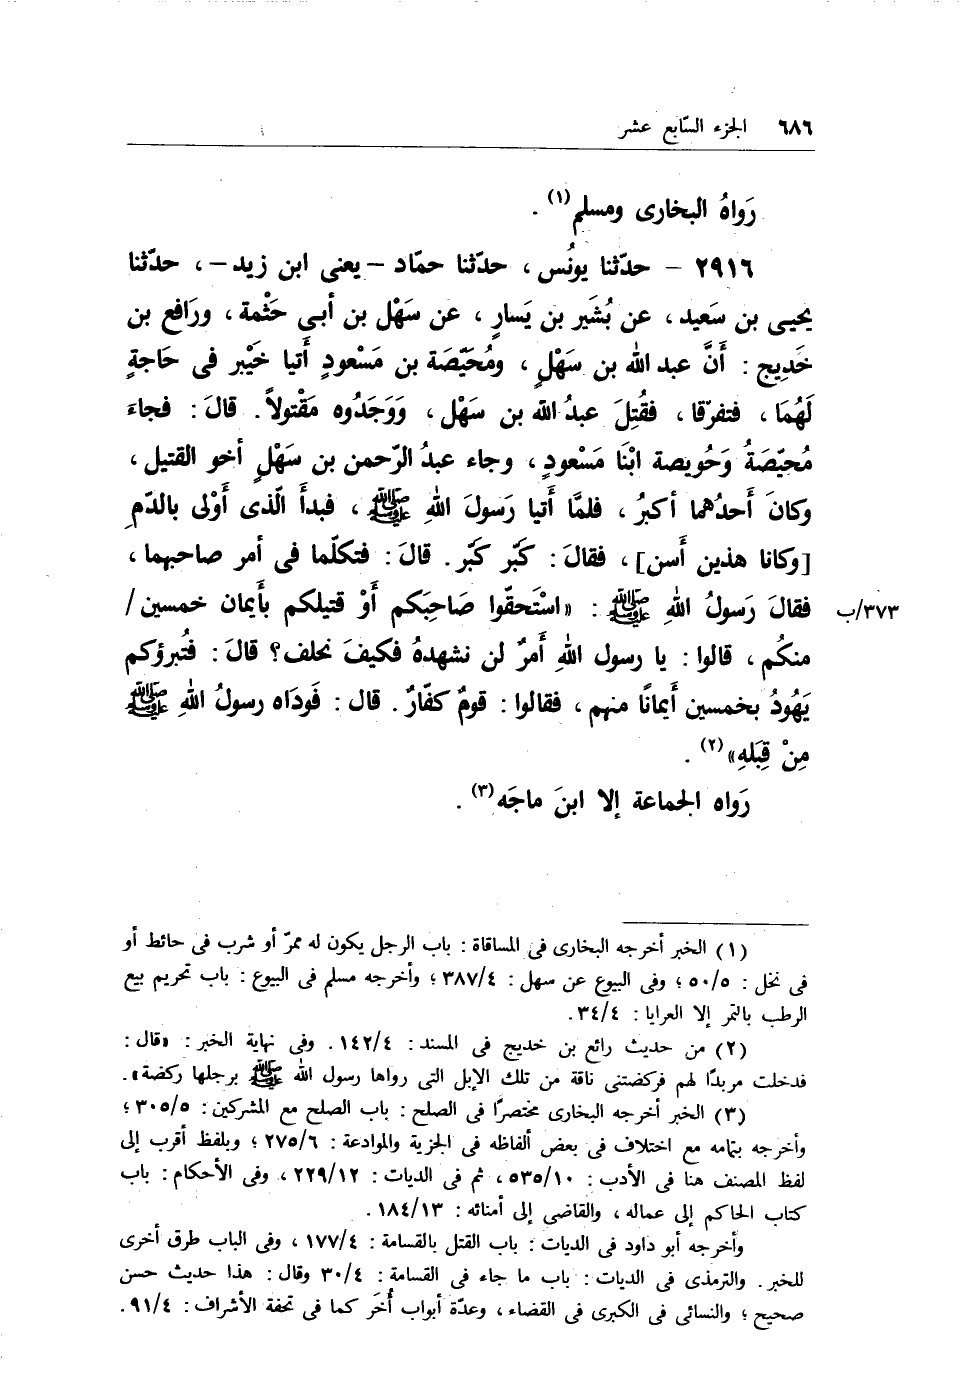 ٦٨٦ الجزء السّابع عشر
رَواهُ البخارى ومسلم(١) .
٢٩١٦ – حدّثنا يونُس ، حدّثنا حمّاد – يعنى ابن زيد – ، حدّثنا
يحيى بن سَعيد ، عن بُشَير بن يَسارٍ ، عن سَهْل بن أبى حَثْمة ، ورَافع بن
خَدِيج : أَنَّ عبد الله بن سَهْلٍ ، ومُحَيّصَة بن مَسْعودٍ أَتيا خَيْبر فى حَاجةٍ
لَهُمَا ، فتفرّقا ، فقُتِلَ عبدُ الله بن سَهْل ، وَوَجَدُوه مَقْتولاً. قالَ : فجاءَ
مُحيّصَةُ وَحُويصة ابْنَا مَسْعودٍ ، وجاء عبدُ الرّحمن بن سَهْلٍ أخو القتيل ،
وكانَ أَحدُهما أكبرُ ، فلمَّا أَتيا رَسولَ اللهِ ﷺ ، فبدأَ الّذى أَوْلى بالدّمِ
[وكانا هذين أَسن] ، فقالَ : كَبّر كَبّر. قالَ : فتكلّما فى أمر صاحبهما ،
فقالَ رَسولُ اللهِ ﷺ : «اسْتَحقّوا صَاحِبَكم أَوْ قتيلكم بأَيمان خمسين / ٣٧٣/ب
منكُم ، قالوا : يا رسول اللهِ أَمرٌ لن نشهدهُ فكيفَ نحلف؟ قالَ : فتُبرؤكم
يَهُودُ بخمسين أَيمانًا منهم ، فقالوا : قومٌ كفّارٌ. قال : فَودَاه رسولُ اللهِ ﷺ
مِنْ قِبَلهِ»(٢) .
رَواه الجماعة إلا ابنَ ماجَه(٣) .
(١) الخبر أخرجه البخارى فى المساقاة : باب الرجل يكون له ممرّ أو شرب فى حائط أو
فى نخل : ٥٠/٥ ؛ وفى البيوع عن سهل : ٣٨٧/٤ ؛ وأخرجه مسلم فى البيوع : باب تحريم بيع
الرطب بالتمر إلا العرايا : ٣٤/٤.
(٢) من حديث رائع بن خديج فى المسند : ١٤٢/٤. وفى نهاية الخبر : «قال :
فدخلت مربدًا لهم فركضتنى ناقة من تلك الإبل التى رواها رسول الله ﷺ برجلها ركضة».
(٣) الخبر أخرجه البخارى مختصرًا فى الصلح : باب الصلح مع المشركين : ٣٠٥/٥ ؛
وأخرجه بتمامه مع اختلاف فى بعض ألفاظه فى الجزية والموادعة : ٢٧٥/٦ ؛ وبلفظ أقرب إلى
لفظ المصنف هنا فى الأدب : ٥٣٥/١٠ ، ثم فى الديات : ٢٢٩/١٢ ، وفى الأحكام : باب
كتاب الحاكم إلى عماله ، والقاضى إلى أمنائه : ١٨٤/١٣.
وأخرجه أبو داود فى الديات : باب القتل بالقسامة : ١٧٧/٤ ، وفى الباب طرق أخرى
للخبر. والترمذى فى الديات : باب ما جاء فى القسامة : ٣٠/٤ وقال : هذا حديث حسن
صحيح ؛ والنسائى فى الكبرى فى القضاء ، وعدّة أبواب أُخَر كما فى تحفة الأشراف : ٩١/٤.